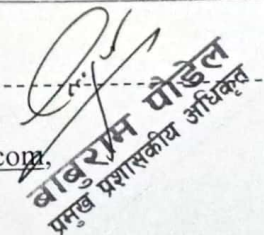 com,
बाबुराम पौडेल
प्रमुख प्रशासकीय अधिकृत